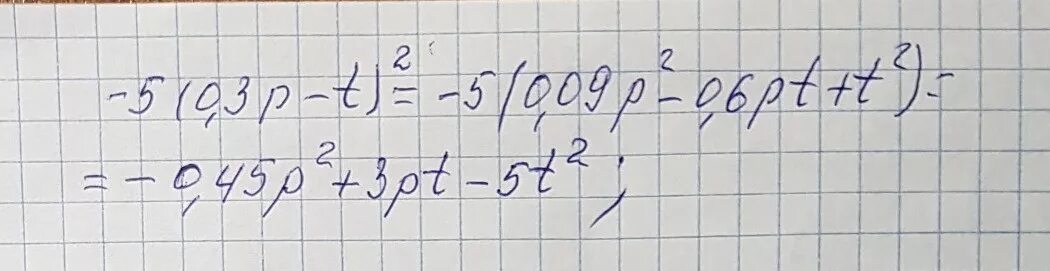 -5(0,3p-t)²=-5(0,09p²-0,6pt+t²)=
=-0,45p²+3pt-5t²;